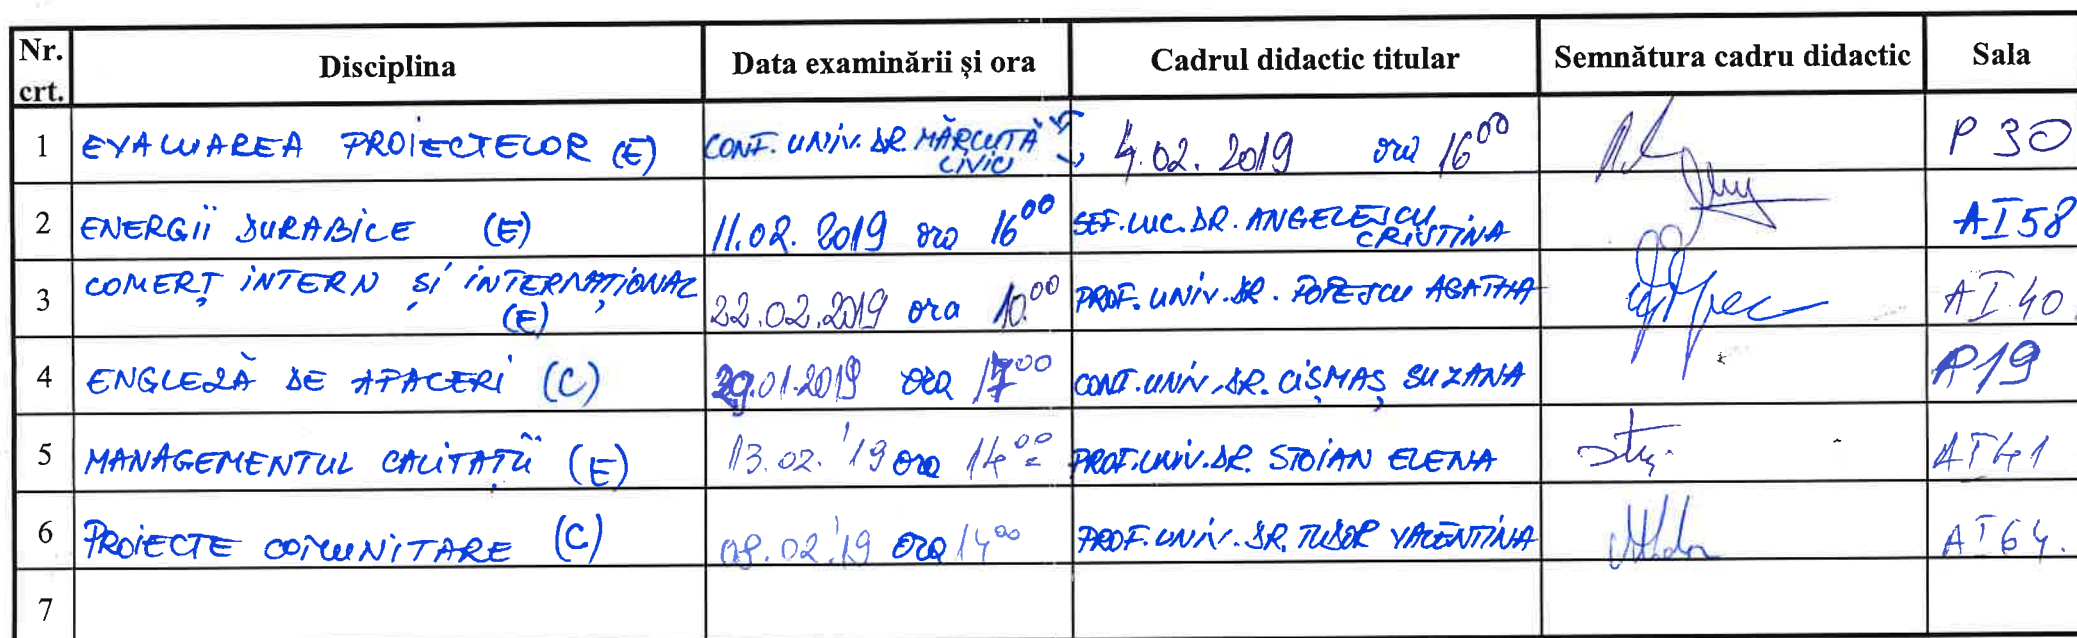 Nr. crt. Disciplina Data examinării și ora Cadrul didactic titular Semnătura cadru didactic Sala
1 EVALUAREA PROIECTELOR (E) CONF. UNIV. DR. MĂRCUȚĂ LIVIU 4.02. 2019 ora 16⁰⁰ P 30
2 ENERGII DURABILE (E) 11.02. 2019 ora 16⁰⁰ ȘEF. LUC. DR. ANGELESCU CRISTINA AI 58
3 COMERȚ INTERN ȘI INTERNAȚIONAL (E) 22.02.2019 ora 10⁰⁰ PROF. UNIV. DR. POPESCU AGATHA AI 40
4 ENGLEZĂ DE AFACERI (C) 29.01.2019 ora 17⁰⁰ CONF. UNIV. DR. CIȘMAȘ SUZANA P19
5 MANAGEMENTUL CALITĂȚII (E) 13.02.'19 ora 14⁰⁰ PROF. UNIV. DR. STOIAN ELENA AI 41
6 PROIECTE COMUNITARE (C) 08.02.'19 ora 14⁰⁰ PROF. UNIV. DR. TUDOR VALENTINA AI 64.
7